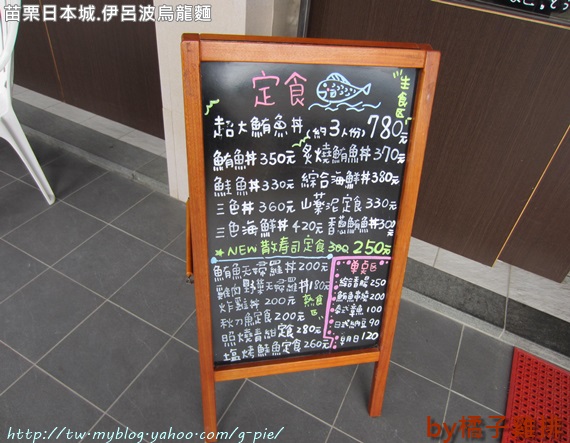 苗栗日本城.伊呂波烏龍麵
定食
生食区
超大鮪魚丼(約3人份) 780元
鮪魚丼350元 炙燒鮪魚丼370元
鮭魚丼330元 綜合海鮮丼380元
三色丼360元 山藥泥定食330元
三色海鮮丼420元 香蔥鮪魚300
★NEW散寿司定食300 250元
鮪魚天婦羅丼200元
雞肉野菜天婦羅丼180元
炸雞丼200元
熱食区
秋刀魚定食200元
照燒青甘定食280元
塩烤鮭魚定食260元
單点区
250
200
100
日式納豆90
120
http://tw-myblog-yahoo.com/g-pie/
by橘子雞排